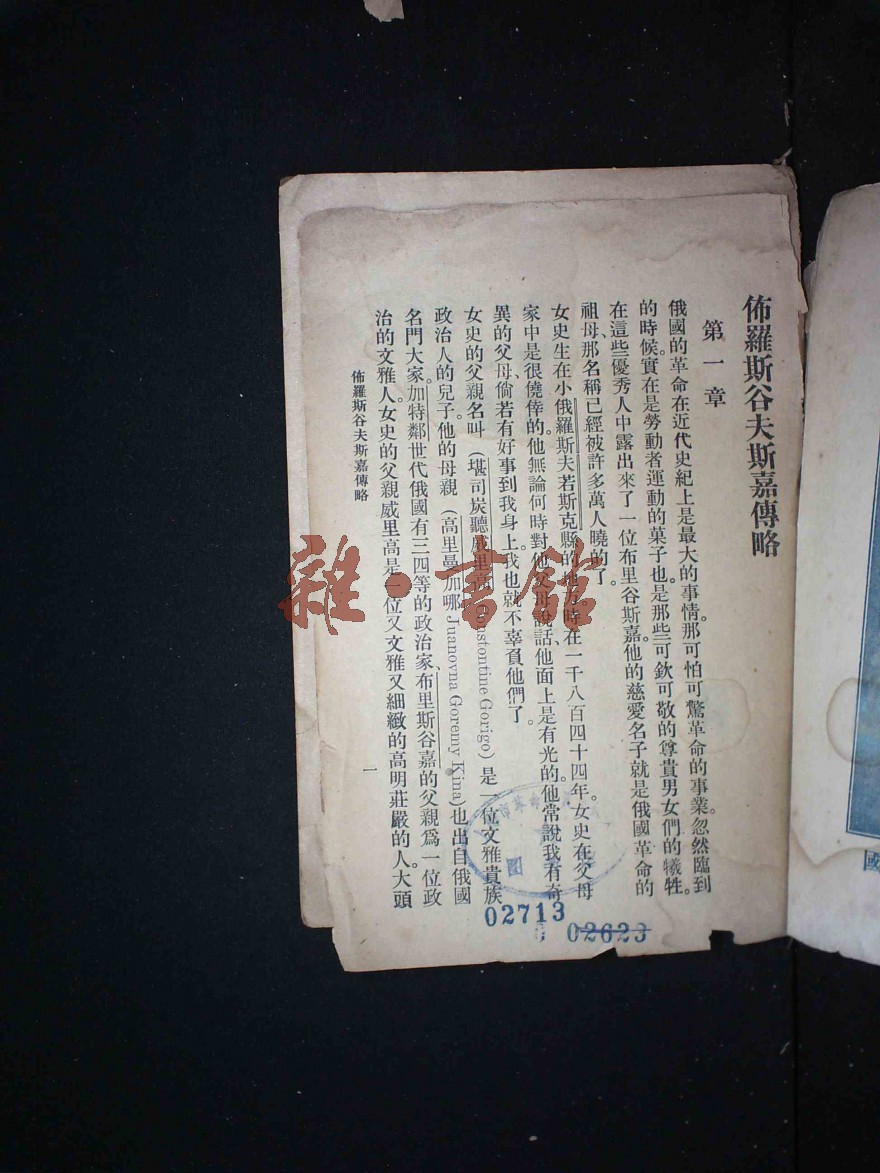 佈羅斯谷夫斯嘉傳略
第一章
俄國的革命在近代史紀上是最大的事情。那可怕可驚革命的事業。忽然臨到
的時候。實在是勞動者運動的菓子也。是那些可欽可敬的尊貴男女們的犧牲。
在這些優秀人中露出來了一位布里谷斯嘉。他的慈愛名子就是俄國革命的
祖母、那名稱已經被許多萬人曉的了。
女史生在小俄羅斯夫若斯克縣的地方時在一千八百四十四年。女史在父母
家中是很僥倖的。他無論何時對他父母說話、他面上是有光的。他常說我有奇
異的父母、倘若有好事到我身上。我也就不辜負他們了。
女史的父親名叫（堪司炭聽威里高 Constontine Gorigo）是一位文雅貴族
政治人的兒子。他的母親（高里曼加哪 Juanovna Goremy Kina）也出自俄國
名門大家。加特鄰世代俄國有三四等的政治家、布里斯谷嘉的父親爲一位政
治的文雅人。女史的父親威里高是一位又文雅又細緻的高明莊嚴的人。大頭
佈羅斯谷夫斯嘉傳略
一
雜·書館
圖
02713
02623
國